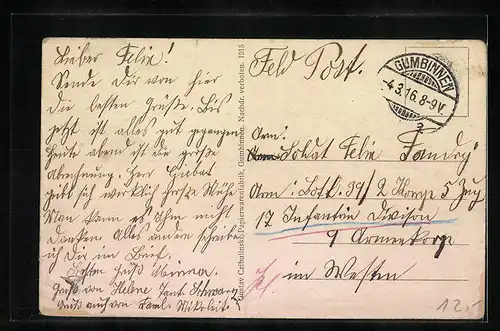 Lieber Felix!
Sende Dir von hier
die besten Grüße. Bis
jetzt ist alles gut gegangen
heute abend ist die große
Abrechnung. Herr
giebt sich wirklich Mühe
Man kann es Ihm nicht
danken Alles andre schreibe
ich Dir im Brief.
Gruß
Gruß von Helene Tant. Schwarz
Gruß auch von Faml.
Gustav Papierwarenfabrik, Gumbinnen. Nachdr. verboten. 1915
Feld Post.
GUMBINNEN
-4.3.16.8-9V.
Arm.
Soldat Felix
Arm: Batl. 99/2 Komp 5 Zug
17 Infanterie Division
9 Armeekorp
im Westen
12,-